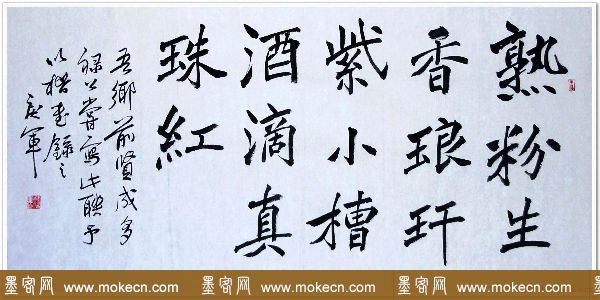 熟粉生
香琅玕
紫小槽
酒滴真
珠紅
吾鄉前賢成多
禄公嘗寫此聯予
以楷書錄之
軍
墨客网 - www.mokecn.com 墨客网 - www.mokecn.com 墨客网 - www.mokecn.com